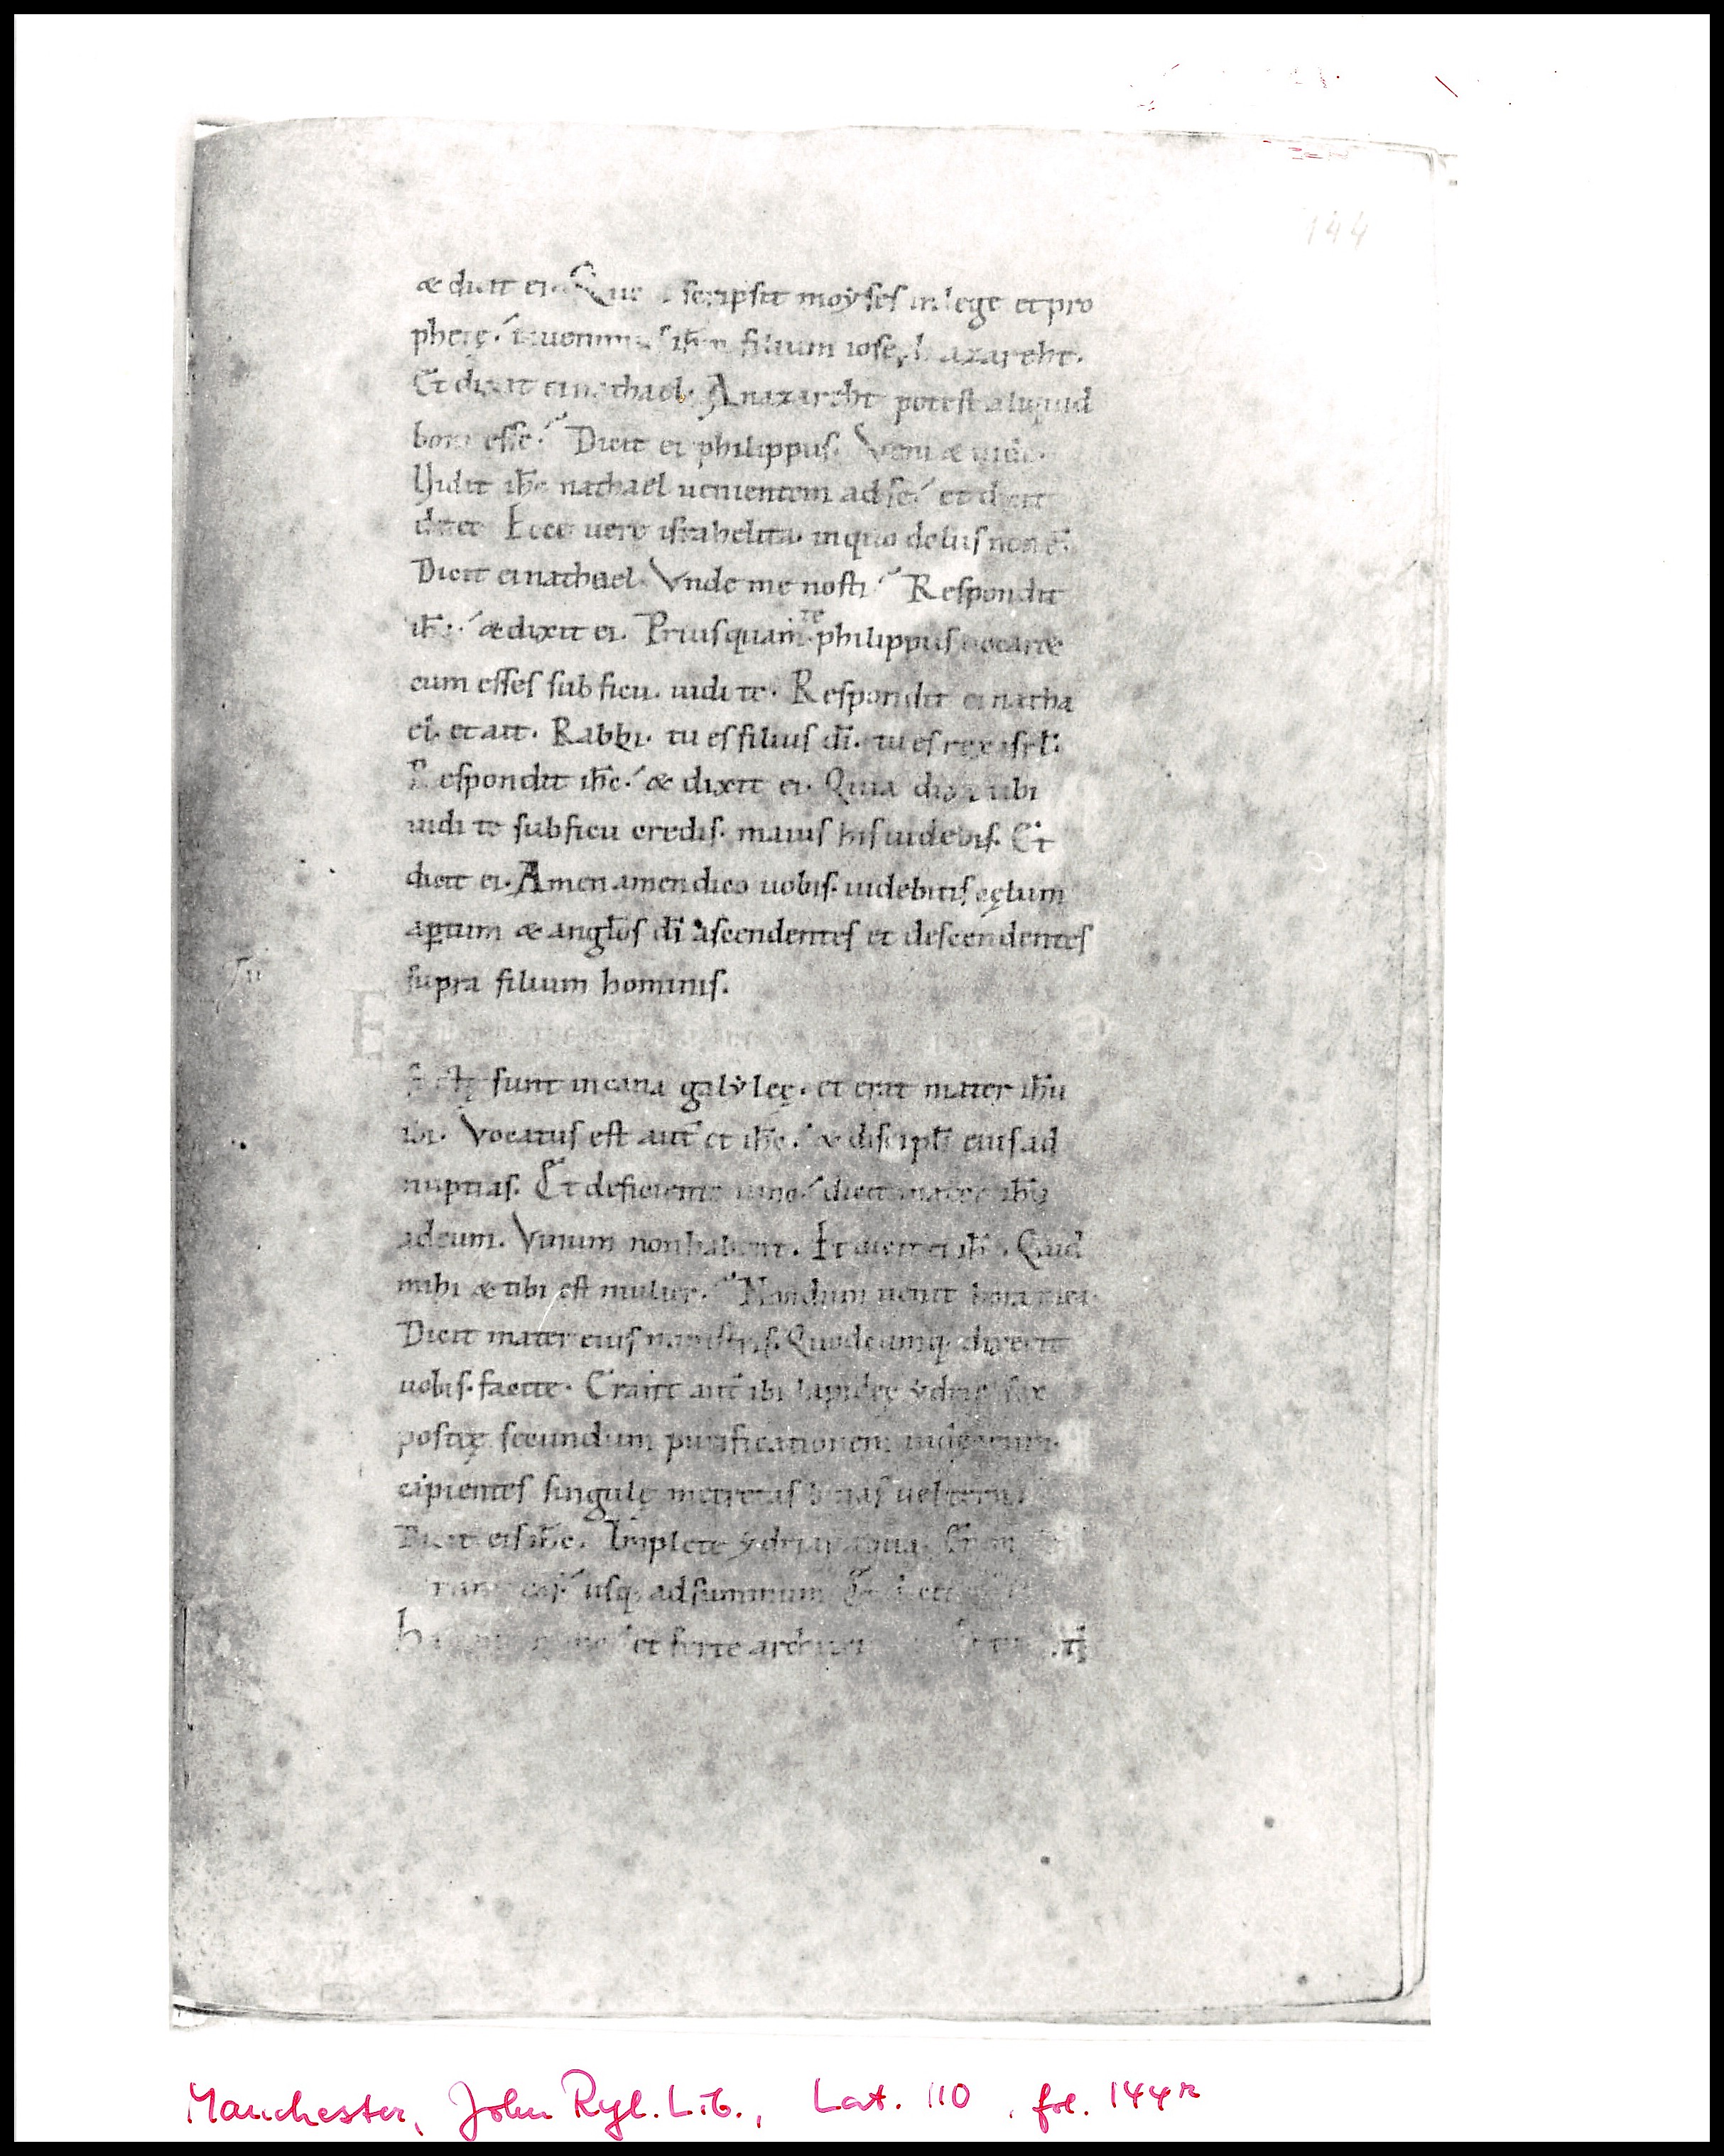 144
& dicit ei. Que scripsit moyses in lege et pro
phetę. inuenimus ihm filium ioseph azareht.
Et dixit ei nathael. A nazareht potest aliquid
boni esse. Dicit ei philippus. Veni & uide.
Vidit ihc nathael uenientem ad se. et dicit
de eo Ecce uere israhelita. in quo dolus non ē.
Dicit ei nathael. Vnde me nosti Respondit
ihc. & dixit ei. Priusquam te philippus uocar&
cum esses sub ficu. uidi te. Respondit ei natha
el. et ait. Rabbi. tu es filius di. tu es rex isrl.
Respondit ihc. & dixit ei. Quia dixi tibi
uidi te sub ficu credis. maius his uidebis. Et
dicit ei. Amen amen dico uobis. uidebitis cęlum
aptum & anglos di ascendentes et descendentes
supra filium hominis.
E
factę sunt in cana galyleę. et erat mater ihu
ibi. Vocatus est aut et ihc. & discipli eius ad
nuptias. Et deficiente uino dicit mater ihu
ad eum. Vinum non habent. Et dicit ei ihc. Quid
mihi & tibi est mulier. Nondum uenit hora mea.
Dicit mater eius ministris. Quodcumq. dixerit
uobis. facite. Erant aut ibi lapideę ydrię sex
positę secundum purificationem iudęorum.
capientes singulę metretas binas uel ternas
Dicit eis ihc. Implete ydrias aqua.
eas. usq. ad summum Et
et ferte
Manchester, John Ryl. Lib., Lat. 110, fol. 144r